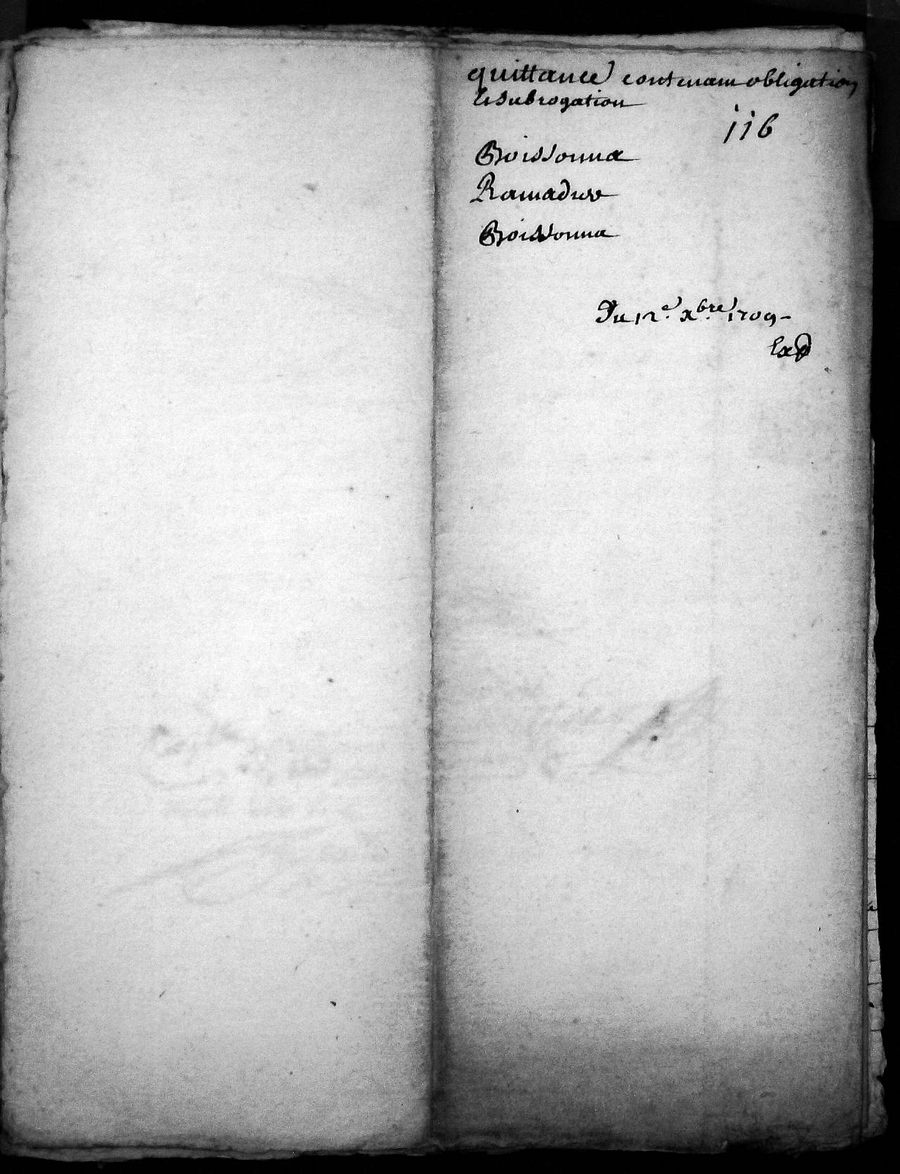 quittance contenant obligation
et subrogation
116
Boissonna
Ramadou
Boissonna
Du 12e. xbre. 1709-